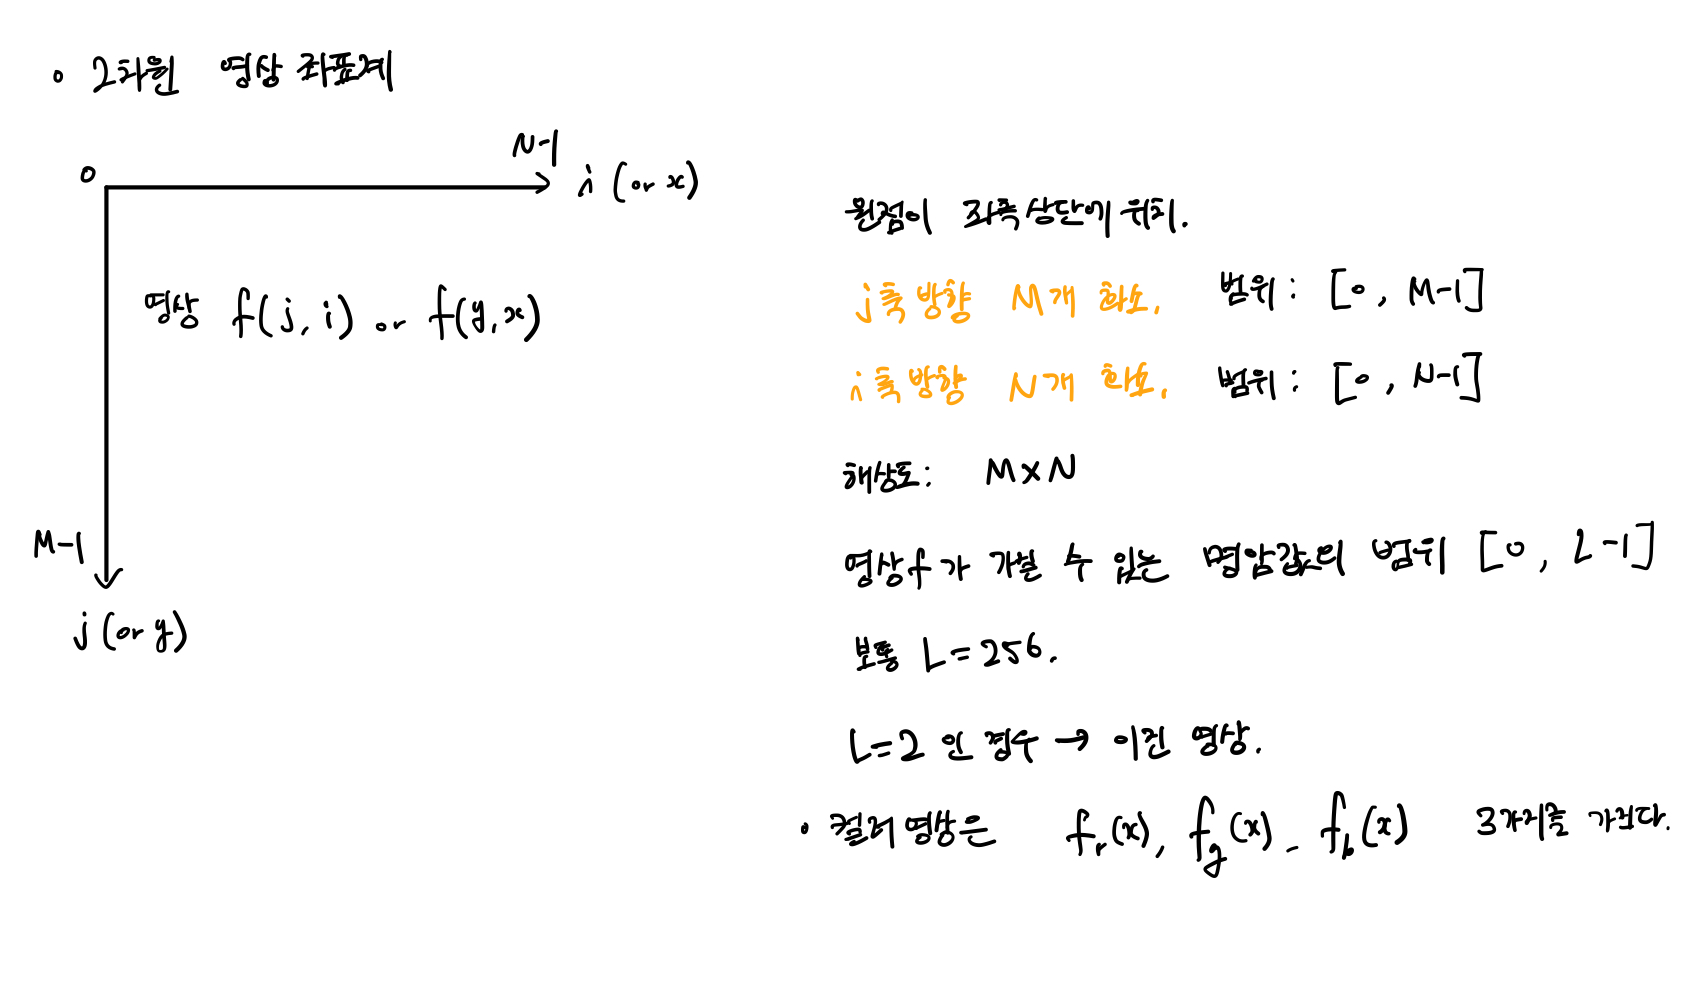 • 2차원 영상 좌표계
N-1
0
i (or x)
영상 f(j, i) or f(y, x)
M-1
j (or y)
원점이 좌측 상단에 위치.
j축 방향 M개 화소. 범위 : [0, M-1]
i축 방향 N개 화소. 범위 : [0, N-1]
해상도: M×N
영상f가 가질 수 있는 명암값의 범위 [0, L-1]
보통 L=256.
L=2 인 경우 → 이진 영상.
• 컬러 영상은 fr(x), fg(x), fb(x) 3가지를 가진다.